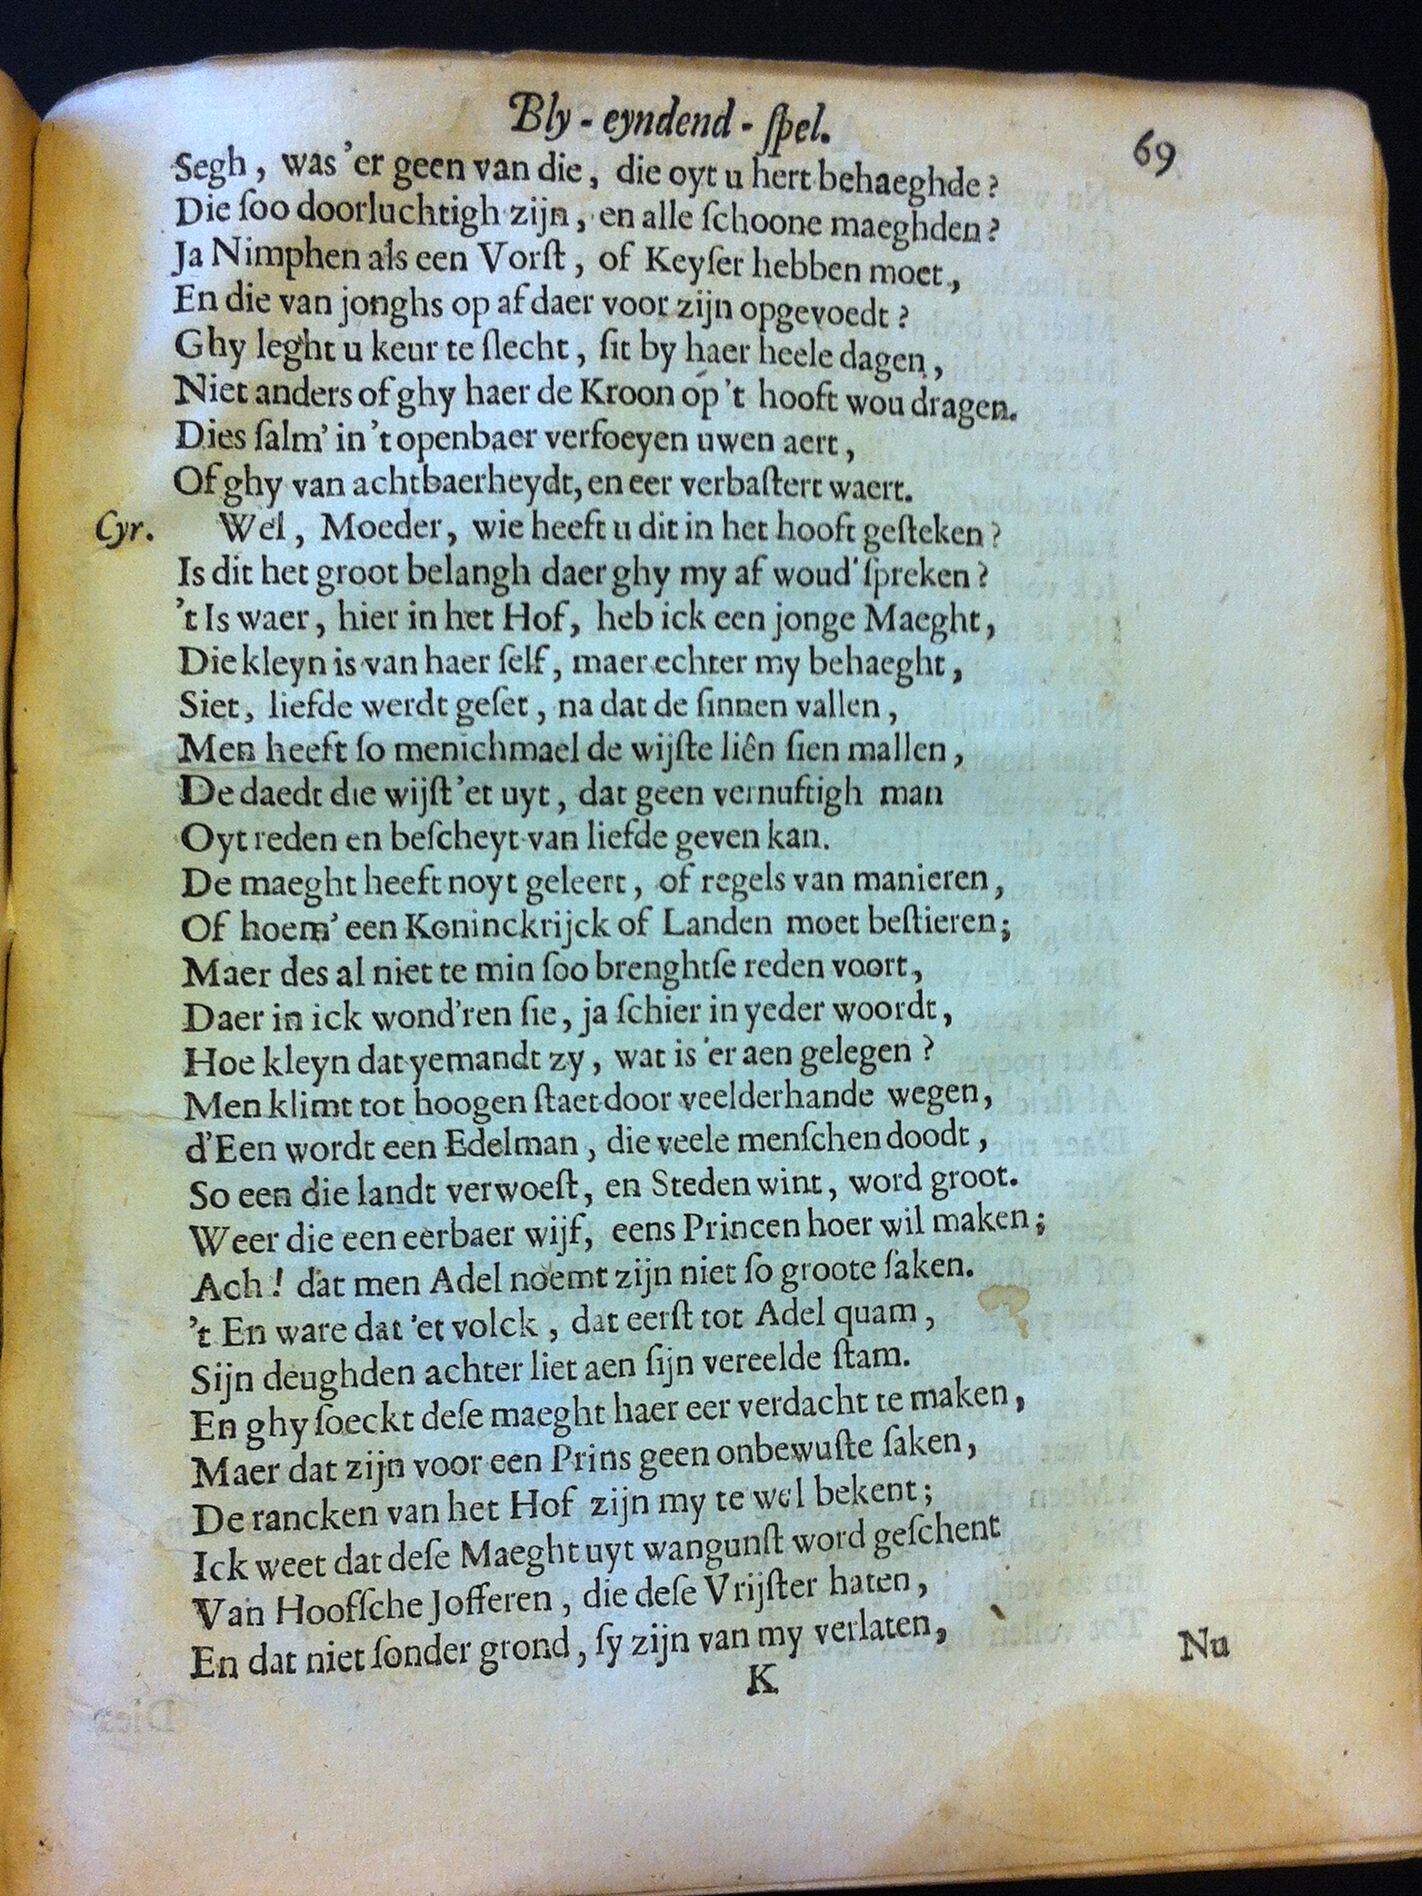 Bly-eyndend-ſpel.
69
Segh, was 'er geen van die, die oyt u hert behaeghde?
Die ſoo doorluchtigh zijn, en alle ſchoone maeghden?
Ja Nimphen als een Vorſt, of Keyſer hebben moet,
En die van jonghs op af daer voor zijn opgevoedt?
Ghy leght u keur te ſlecht, ſit by haer heele dagen,
Niet anders of ghy haer de Kroon op 't hooft wou dragen.
Dies ſalm' in 't openbaer verfoeyen uwen aert,
Of ghy van achtbaerheydt, en eer verbaſtert waert.
Cyr. Wel, Moeder, wie heeft u dit in het hooft geſteken?
Is dit het groot belangh daer ghy my af woud' ſpreken?
't Is waer, hier in het Hof, heb ick een jonge Maeght,
Die kleyn is van haer ſelf, maer echter my behaeght,
Siet, liefde werdt geſet, na dat de ſinnen vallen,
Men heeft ſo menichmael de wijſte liên ſien mallen,
De daedt die wijſt 'et uyt, dat geen vernuftigh man
Oyt reden en beſcheyt van liefde geven kan.
De maeght heeft noyt geleert, of regels van manieren,
Of hoem' een Koninckrijck of Landen moet beſtieren;
Maer des al niet te min ſoo brenghtſe reden voort,
Daer in ick wond'ren ſie, ja ſchier in yeder woordt,
Hoe kleyn dat yemandt zy, wat is 'er aen gelegen?
Men klimt tot hoogen ſtaet door veelderhande wegen,
d'Een wordt een Edelman, die veele menſchen doodt,
So een die landt verwoeſt, en Steden wint, word groot.
Weer die een eerbaer wijf, eens Princen hoer wil maken;
Ach! dat men Adel noemt zijn niet ſo groote ſaken.
't En ware dat 'et volck, dat eerſt tot Adel quam,
Sijn deughden achter liet aen ſijn vereelde ſtam.
En ghy ſoeckt deſe maeght haer eer verdacht te maken,
Maer dat zijn voor een Prins geen onbewuſte ſaken,
De rancken van het Hof zijn my te wel bekent;
Ick weet dat deſe Maeght uyt wangunſt word geſchent
Van Hoofſche Jofferen, die deſe Vrijſter haten,
En dat niet ſonder grond, ſy zijn van my verlaten,
K
Nu